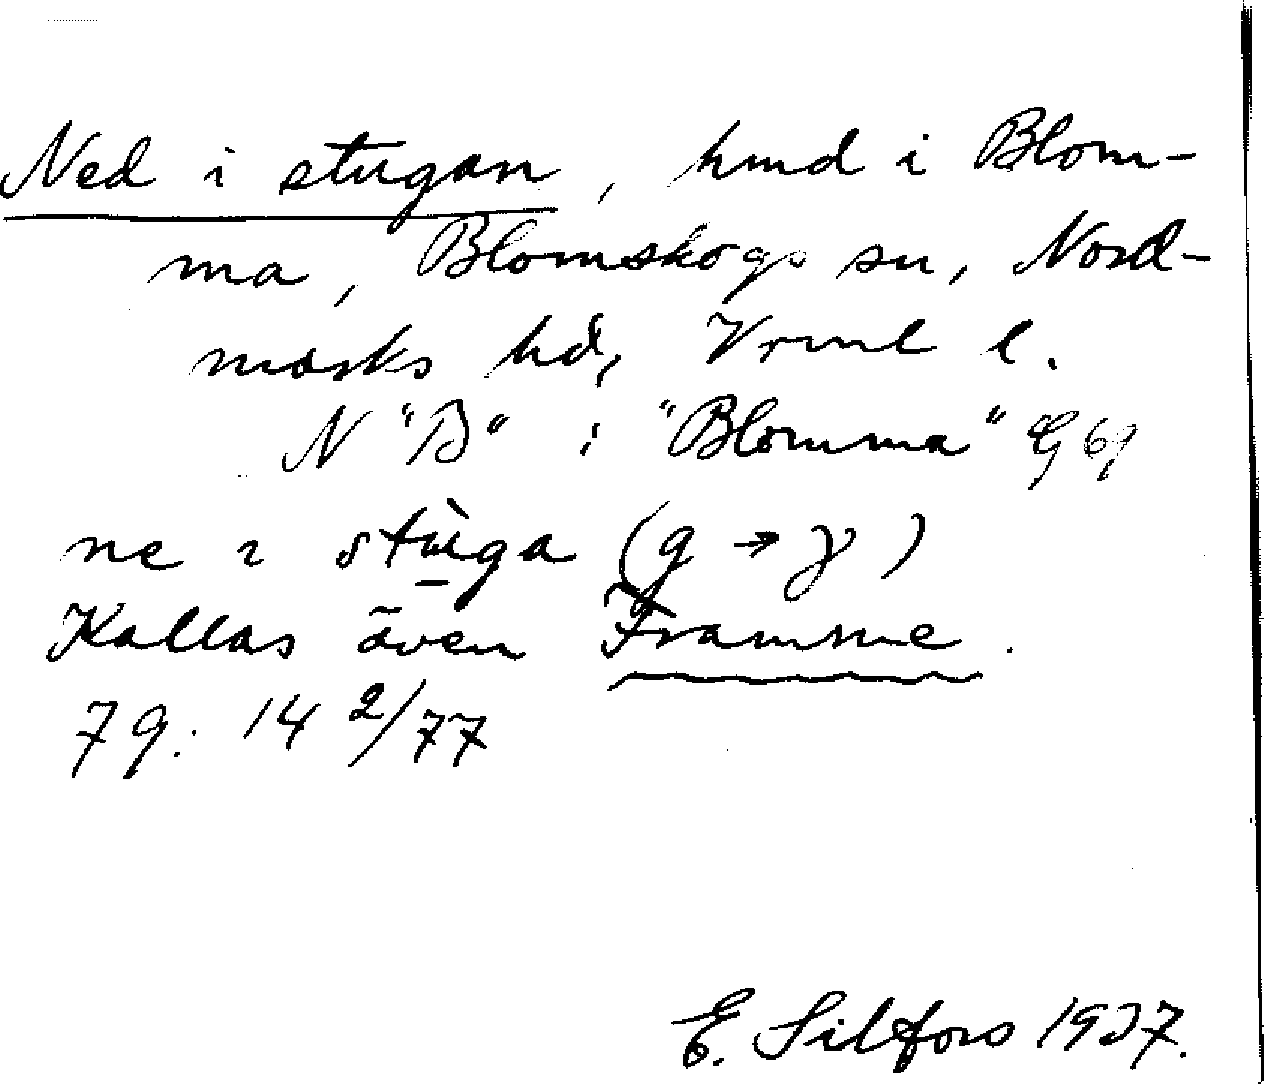 Ned i stugan, hmd i Blom-
ma, Blomskogs sn, Nord-
marks hd, Vrml l.
N "B" i "Blomma" G 69
ne ı stù̲ga (g → γ)
Kallas även Framme.
79: 14 2/77
E. Silfors 1937.